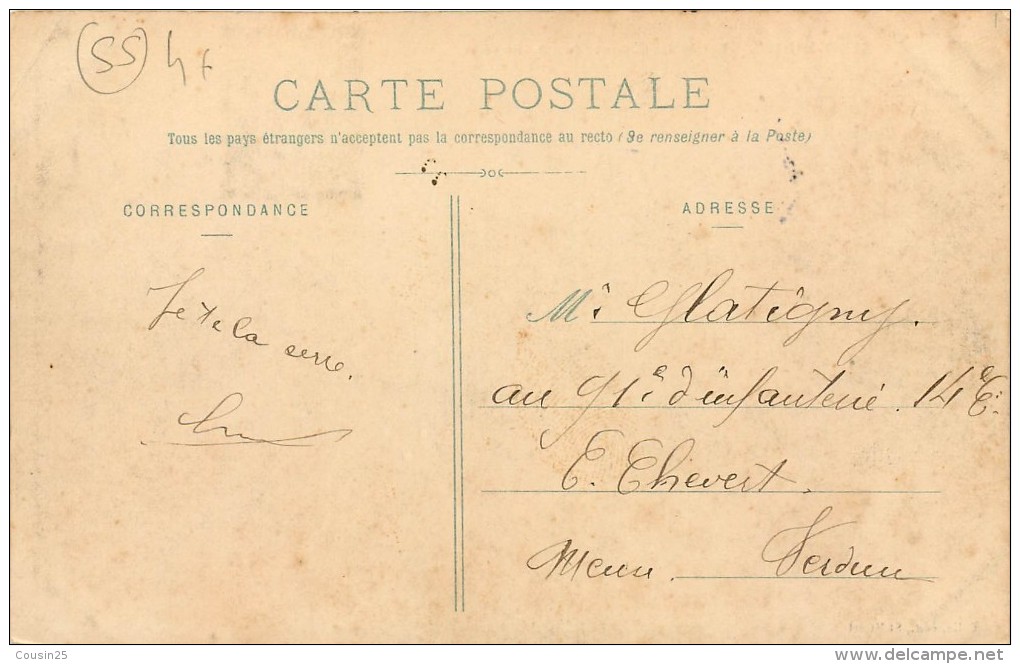 55
CARTE POSTALE
Tous les pays étrangers n'acceptent pas la correspondance au recto (Se renseigner à la Poste)
CORRESPONDANCE
ADRESSE
Je te la serre.
Mr Glatigny.
au 91e d'infanterie. 14e Cie
C. Chevert.
Meuse. Verdun
Cousin25
delcampe.net